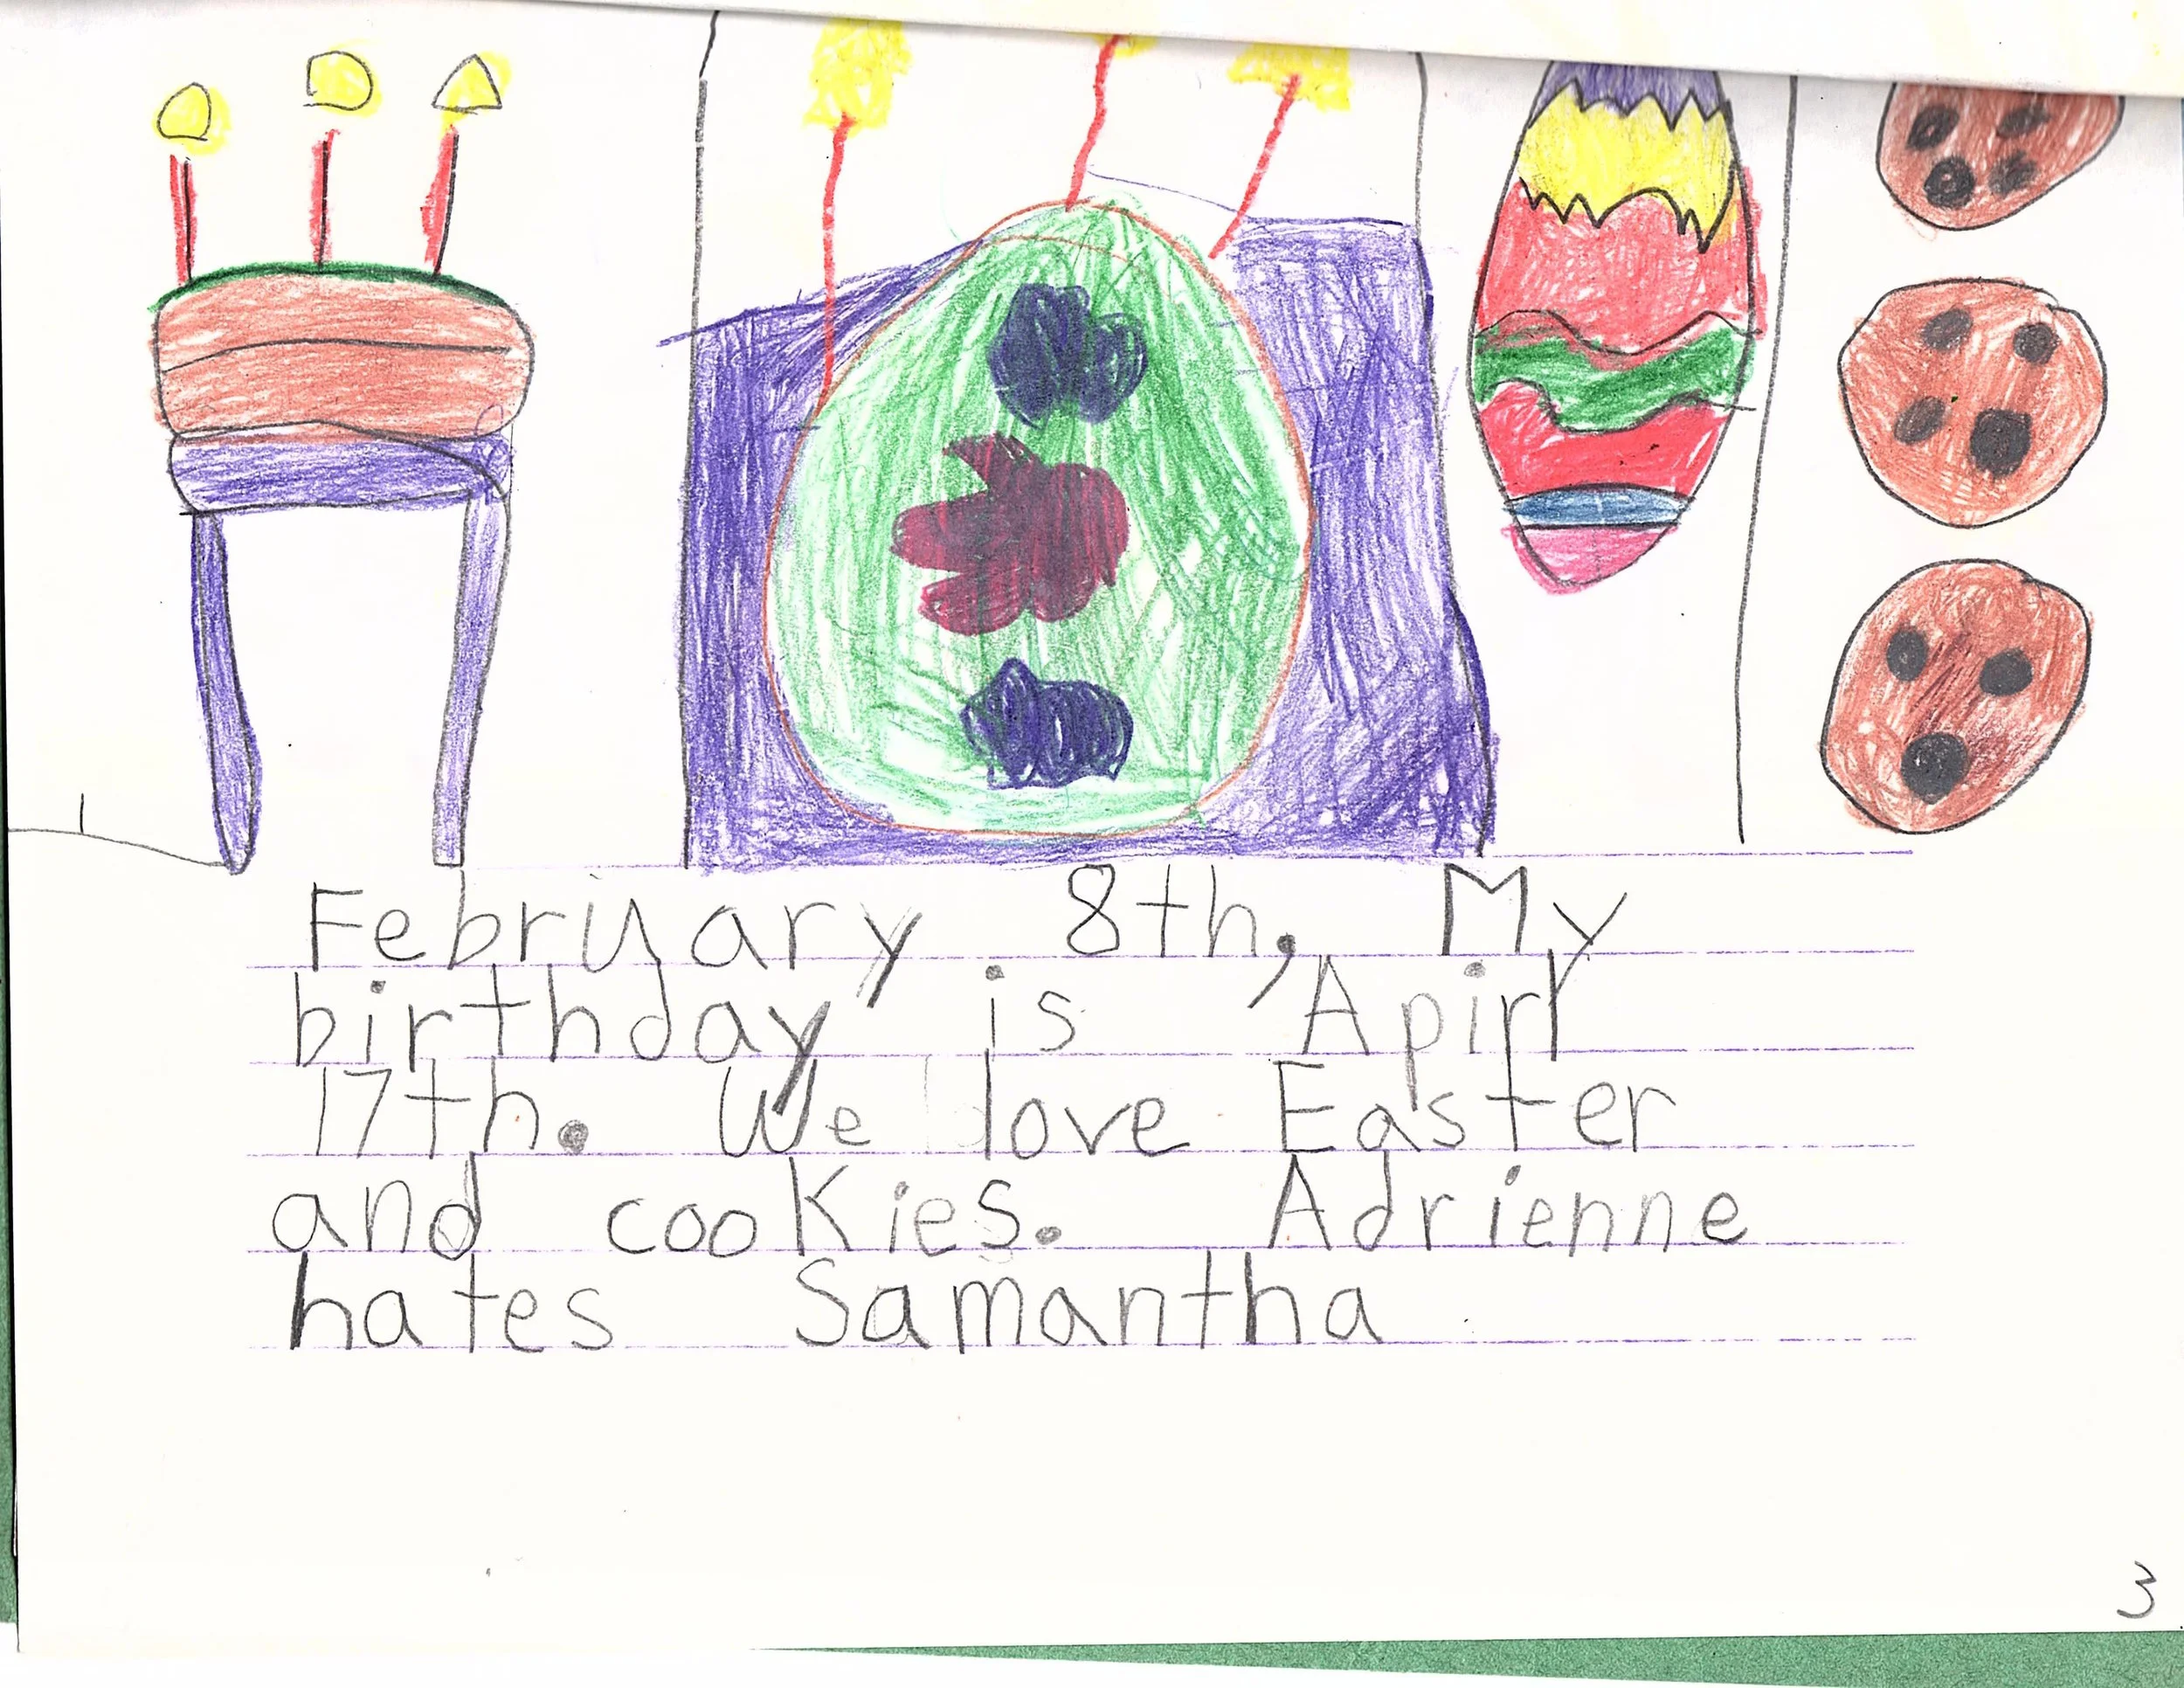 February 8th, My
birthday is Apirl
17th. We love Easter
and cookies. Adrienne
hates Samantha
3